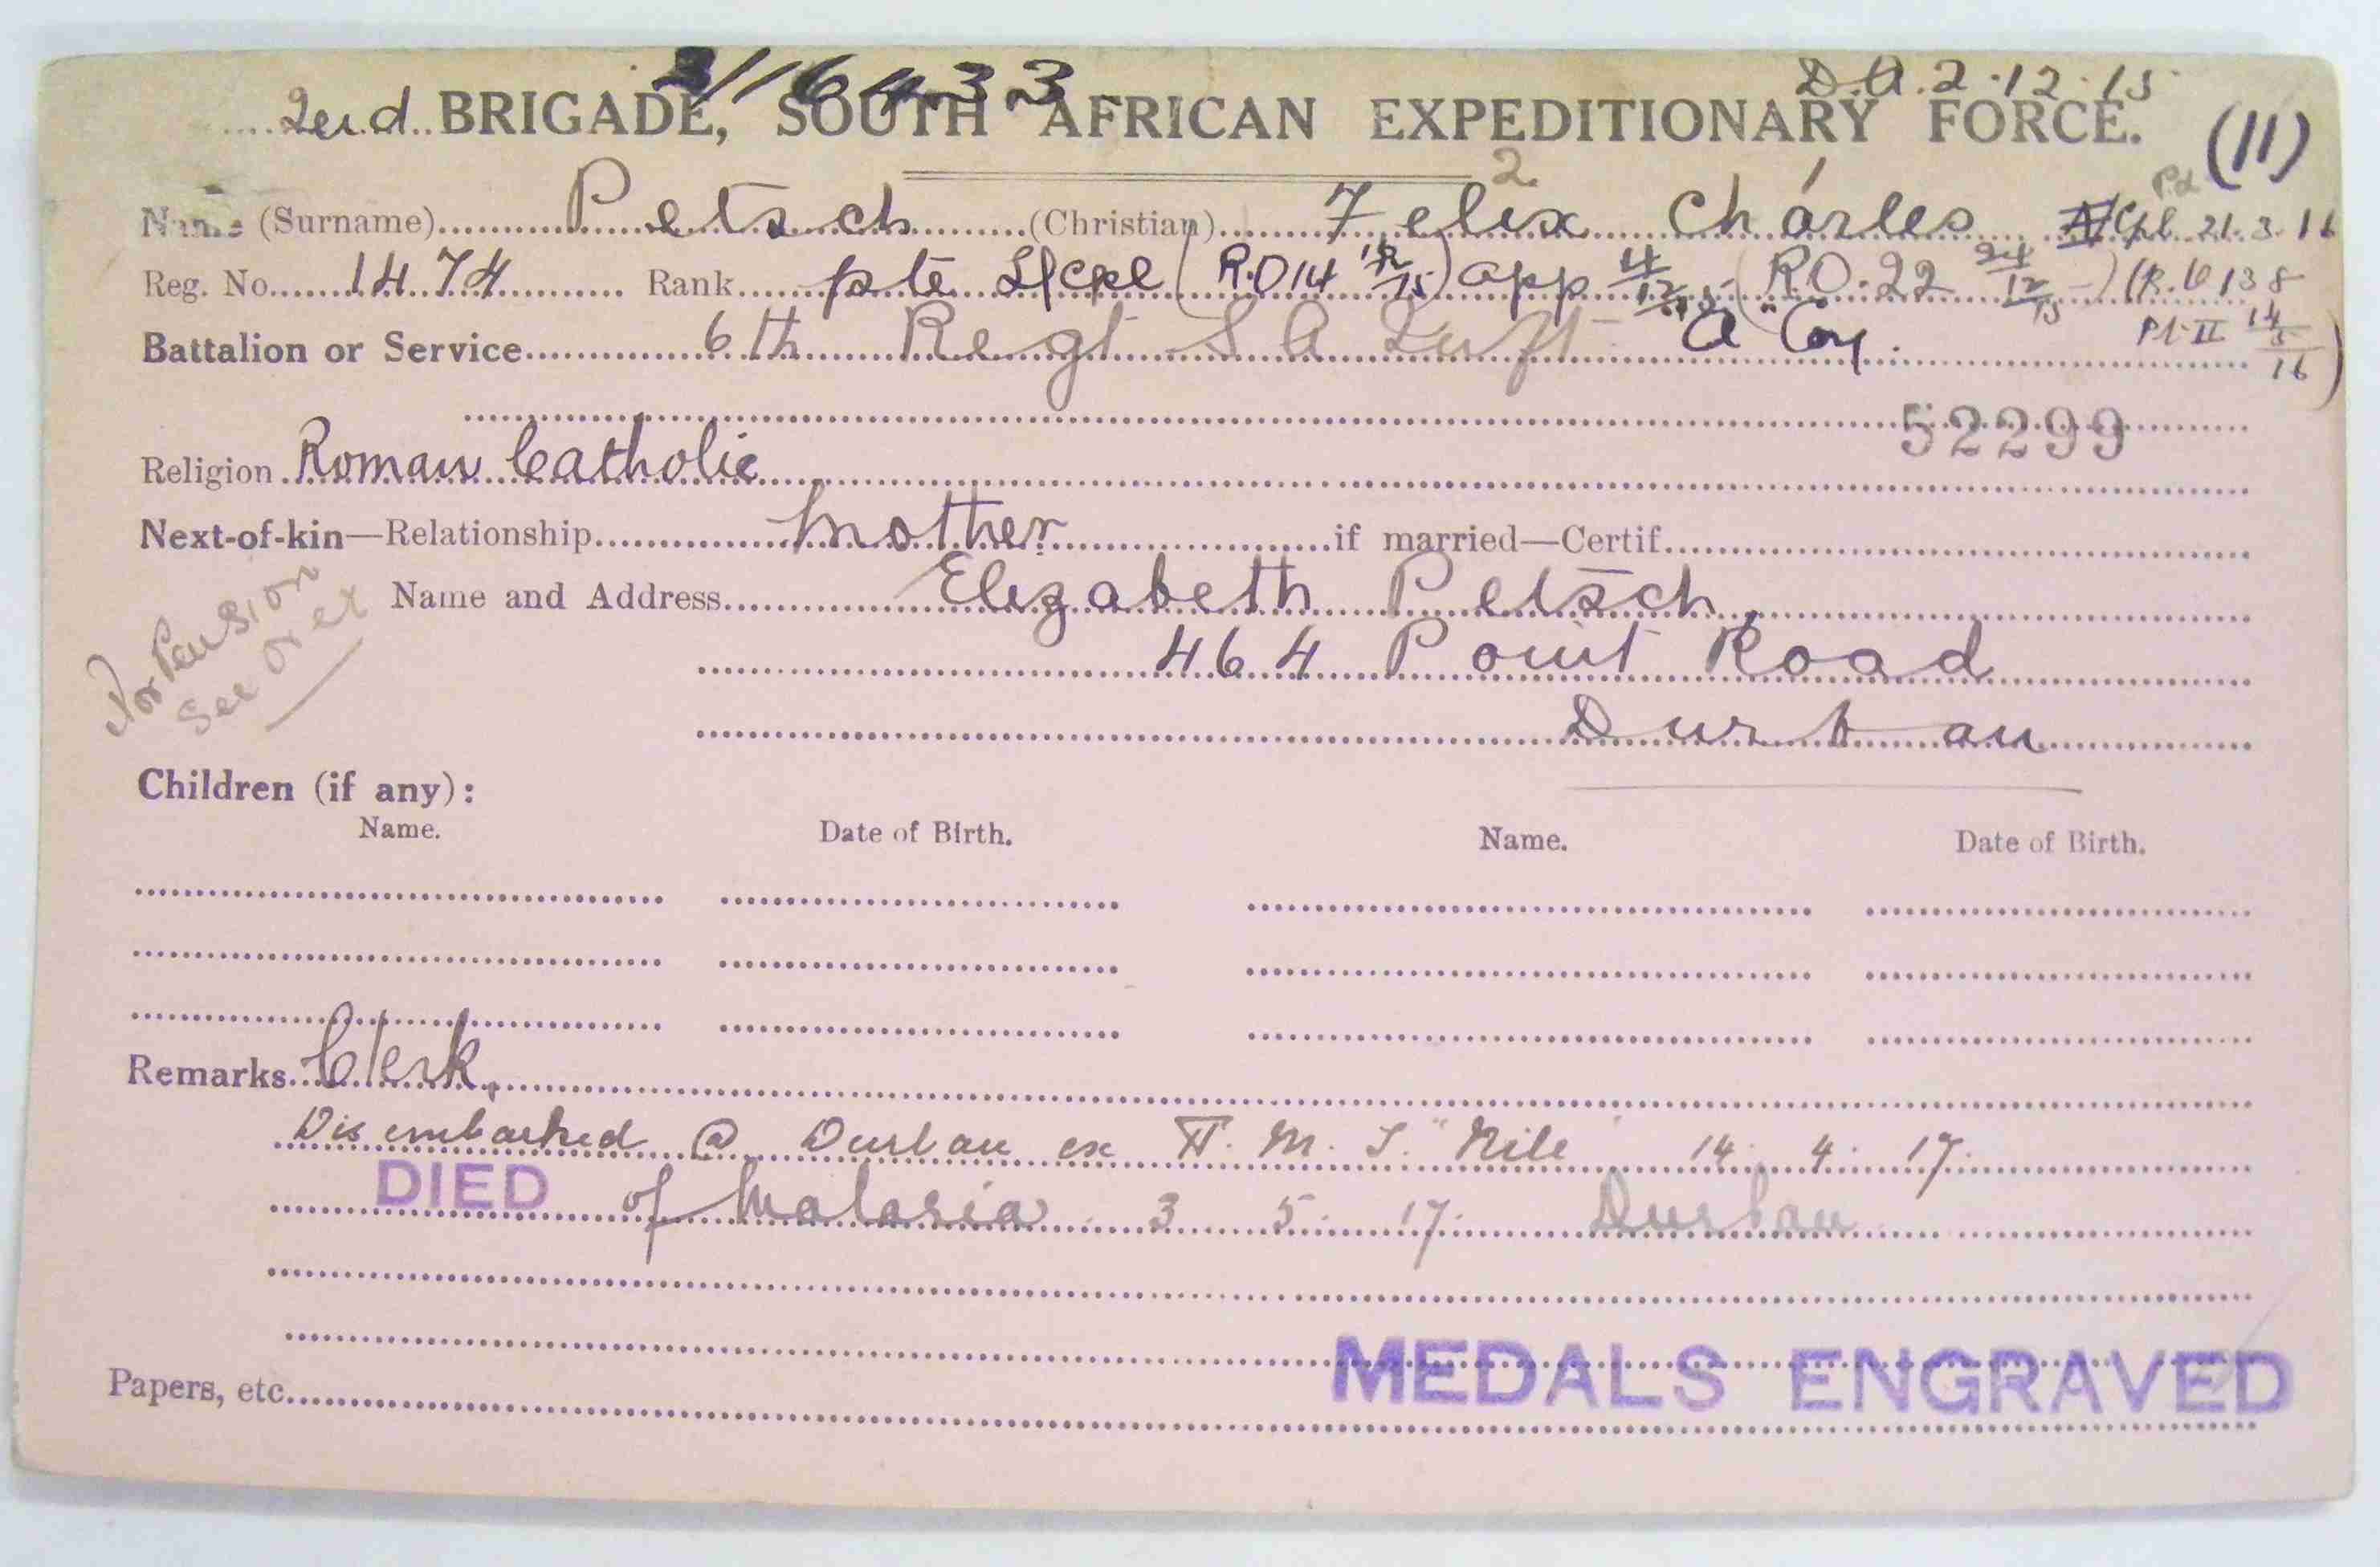 3/16433
D.A. 2.12.15
2nd BRIGADE, SOUTH AFRICAN EXPEDITIONARY FORCE. (11)
2
Name (Surname) Petsch (Christian) Felix Charles A/Cpl. 21.3.16
Reg. No. 1474 Rank pte L/cpl (R.O 14 /15) app 4/12/15 (R.O. 22 24/12/15) (R.O 138
Battalion or Service 6th Regt S A Inft A Coy. Pt II 14/5/16)
52299
Religion Roman Catholic
Next-of-kin—Relationship Mother if married—Certif.
Name and Address Elizabeth Petsch,
For Pension
see over
464 Point Road
Durban
Children (if any):
Name. Date of Birth. Name. Date of Birth.
Remarks Clerk.
Disembarked @ Durban ex H.M.T. "Nile" 14. 4. 17.
DIED of Malaria 3. 5. 17. Durban
MEDALS ENGRAVED
Papers, etc.